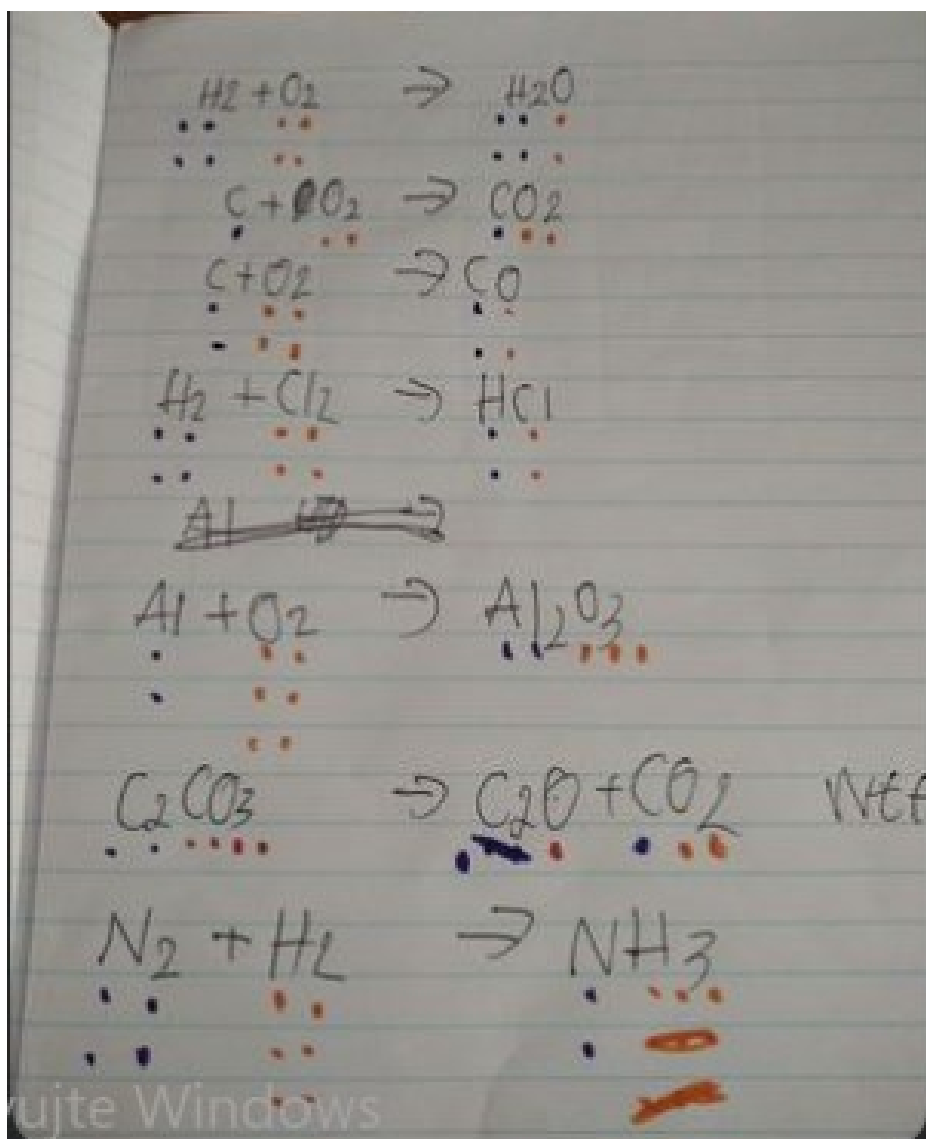 H2 + O2 → H2O
C + O2 → CO2
C + O2 → CO
H2 + Cl2 → HCl
Al
Al + O2 → Al2O3
C2CO3 → C2O + CO2
N2 + H2 → NH3
ujte Windows